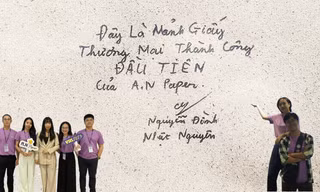 Đây Là Mảnh Giấy
Thương Mại Thành Công
ĐẦU TIÊN
Của A.N Paper.
Nguyễn Đình
Nhất Nguyên